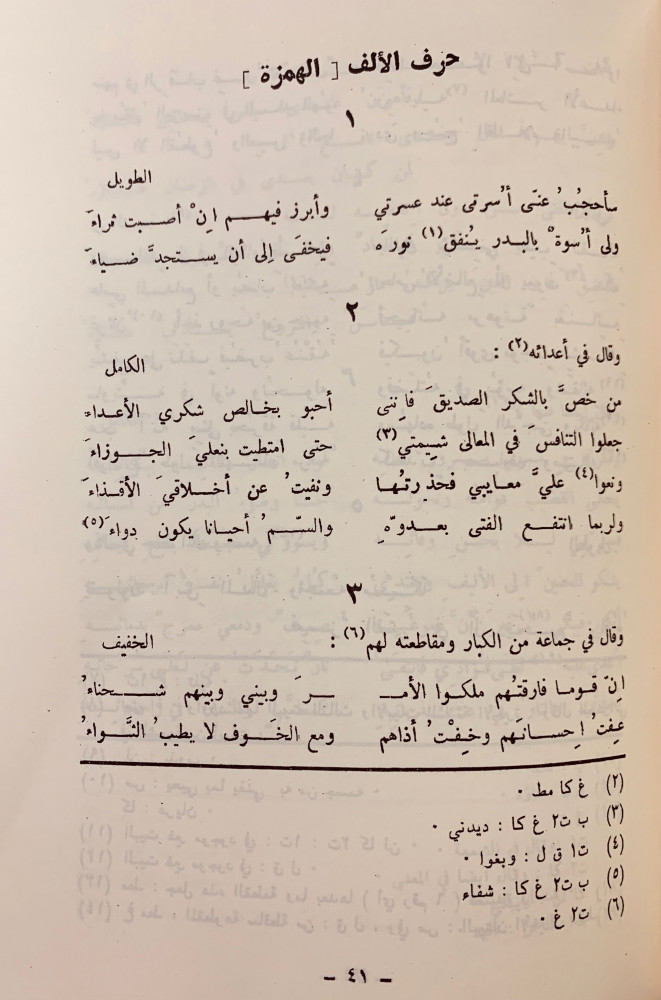 حرف الألف [ الهمزة ]
١
الطويل
سأحجبُ عنّى أُسرتى عند عسرتي وأبرز فيهم إنْ أصبت ثراءَ
ولى أُسوةٌ بالبدر يُنفق(١) نورَه فيخفَى إلى أن يستجدَّ ضياءَ
٢
وقال في أعدائه(٢) :
الكامل
من خصَّ بالشكر الصديقَ فإننى أحبو بخالص شكري الأعداءَ
جعلوا التنافسَ في المعالى شيمتي(٣) حتى امتطيت بنعليَ الجوزاءَ
ونعوا(٤) عليَّ معايبي فحذرتُها ونفيتُ عن أخلاقيَ الأقذاءَ
ولربما انتفع الفتى بعدوّهِ والسّمُ أحيانا يكون دواءَ(٥)
٣
وقال في جماعة من الكبار ومقاطعته لهم(٦) : الخفيف
إنّ قوما فارقتُهم ملكوا الأمـ ـرَ وبيني وبينهم شحناءُ
عِفتُ إحسانَهم وخِفْتُ أذاهم ومع الخَوف لا يطيبُ الثَّواءُ
(٢) غ كا مط ٠
(٣) ب ت٢ غ كا : ديدني ٠
(٤) ت١ ق ل : وبغوا ٠
(٥) ب ت٢ غ كا : شفاء
(٦) ت٢ غ ٠
– ٤١ –